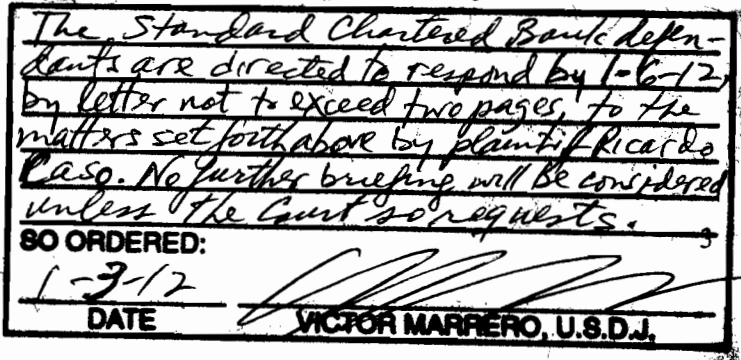 The Standard Chartered Bank defen-
dants are directed to respond by 1-6-12,
by letter not to exceed two pages, to the
matters set forth above by plaintiff Ricardo
Caso. No further briefing will be considered
unless the Court so requests.
SO ORDERED:
1-3-12
DATE VICTOR MARRERO, U.S.D.J.